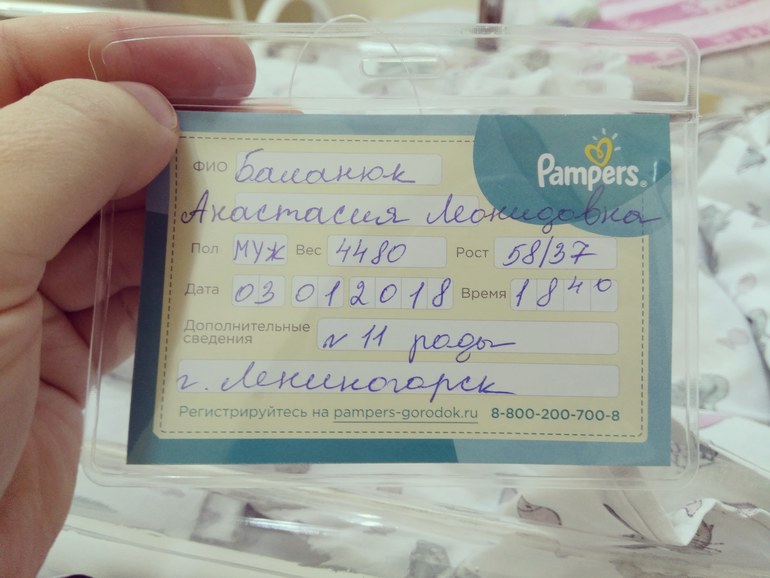 Pampers®
ФИО Баланюк
Анастасия Леонидовна
Пол МУЖ Вес 4480 Рост 58/37
Дата 03 01 2018 Время 18 40
Дополнительные сведения
11 роды
г. Лениногорск
Регистрируйтесь на pampers-gorodok.ru 8-800-200-700-8